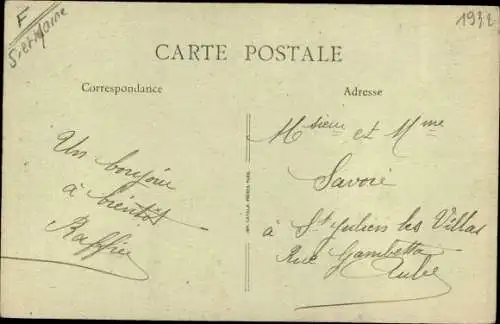 F
S. et Marne
1932
CARTE POSTALE
Correspondance
Adresse
Un bonjour
à bientôt
Raffin
Msieur et Mme
Savoie
à St Julien les Villas
Rue Gambetta
Aube